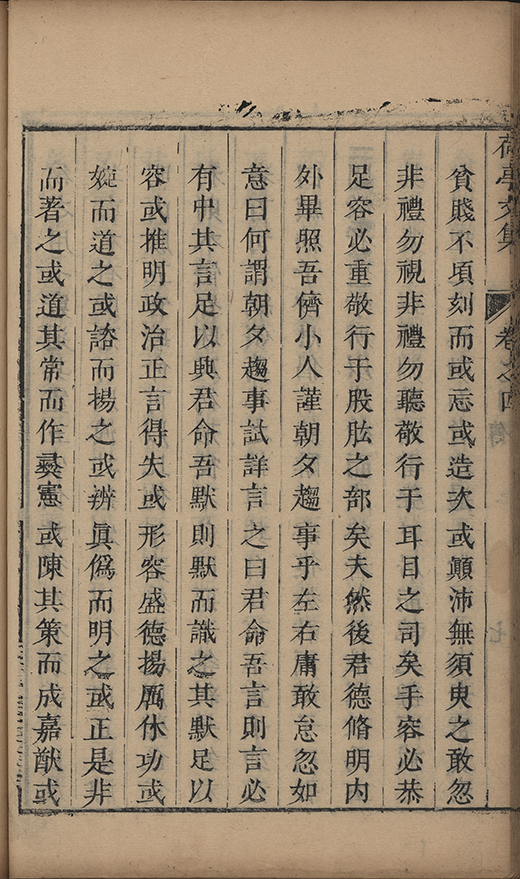 荷亭文集 卷之四 七
貧賤不頃刻而或忘或造次或顛沛無須臾之敢忽
非禮勿視非禮勿聽敬行于耳目之司矣手容必恭
足容必重敬行于股肱之部矣夫然後君德脩明内
外畢照吾儕小人謹朝夕趨事乎左右庸敢怠忽如
意曰何謂朝夕趨事試詳言之曰君命吾言則言必
有中其言足以興君命吾默則默而識之其默足以
容或推明政治正言得失或形容盛德揚厲休功或
婉而道之或諮而揚之或辨眞僞而明之或正是非
而著之或道其常而作彛憲或陳其策而成嘉猷或